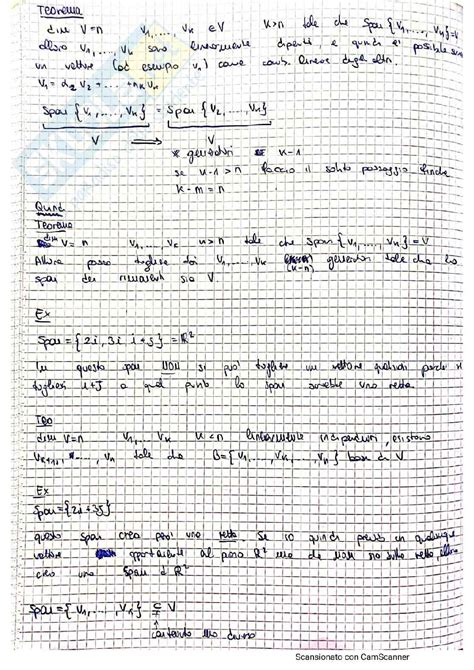 Teorema
dim V=n    v₁,...,vₖ ∈V    k>n    tale che Span{v₁,...,vₖ}=V
allora v₁,...,vₖ sono linearmente dipendenti, e quindi è possibile
un vettore (ad esempio v₁) come comb. lineare degli altri.
v₁ = α₂v₂ + ... + vₖ
Span{v₁,...,vₖ} = Span{v₂,...,vₖ}
V ⟹ V
generatori k-1
se k-1>n faccio il solito passaggio finché
k-m=n
Quindi
Teorema
dim V=n    v₁,...,vₖ    k>n    tale che Span{v₁,...,vₖ}=V
Allora posso togliere dai v₁,...,vₖ (k-n) generatori tale che lo
span dei rimanenti sia V.
Ex
Span={2i, 3i, i+j}=ℝ²
In questo span NON si può togliere un vettore qualsiasi perché
togliessi i+j a quel punto lo span sarebbe una retta.
Teo
dim V=n    v₁,...,vₖ    k<n    linearmente indipendenti, esistono
vₖ₊₁,...,vₙ tale che B={v₁,...,vₖ,...,vₙ} base di V
Ex
Span={2i+3j}
questo span crea però una retta. Se io quindi prendo un qualunque
vettore appartenente al piano ℝ² ma che non sulla retta, allora
creo uno span di ℝ²
Span={v₁,...,vₖ} ⊊ V
contenuto ma diverso
Scansionato con CamScanner